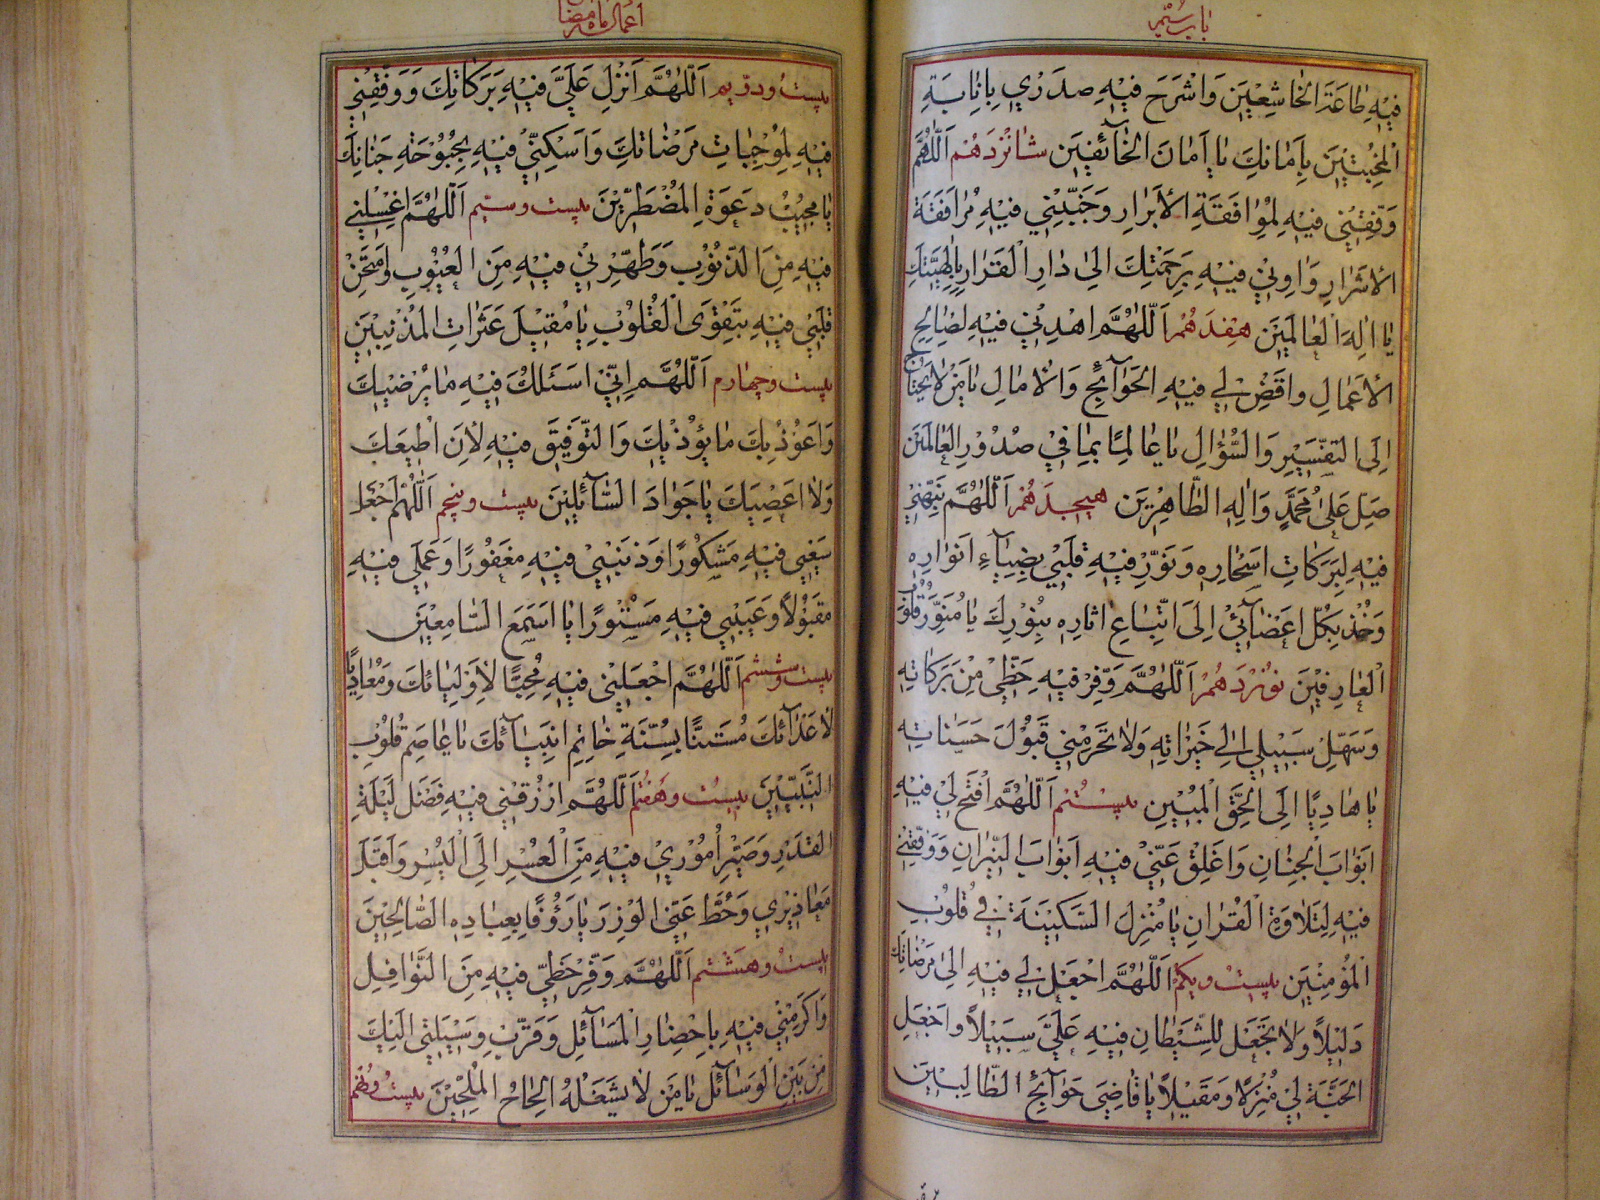 باب سیّم
فِيهِ طَاعَةَ الْخَاشِعِينَ وَاشْرَحْ فِيهِ صَدْرِي بِاِنَابَةِ
الْمُخْبِتِينَ بِاَمَانِكَ يَا اَمَانَ الْخَائِفِينَ شانزدهم اَللّٰهُمَّ
وَفِّقْنِي فِيهِ لِمُوَافَقَةِ الْاَبْرَارِ وَجَنِّبْنِي فِيهِ مُرَافَقَةَ
الْاَشْرَارِ وَاٰوِنِي فِيهِ بِرَحْمَتِكَ اِلٰى دَارِ الْقَرَارِ بِاِلٰهِيَّتِكَ
يَا اِلٰهَ الْعَالَمِينَ هفدهم اَللّٰهُمَّ اهْدِنِي فِيهِ لِصَالِحِ
الْاَعْمَالِ وَاقْضِ لِي فِيهِ الْحَوَآئِجَ وَالْاٰمَالَ يَا مَنْ لَا يَحْتَاجُ
اِلَى التَّفْسِيرِ وَالسُّؤَالِ يَا عَالِمًا بِمَا فِي صُدُورِ الْعَالَمِينَ
صَلِّ عَلٰى مُحَمَّدٍ وَاٰلِهِ الطَّاهِرِينَ هیجدهم اَللّٰهُمَّ نَبِّهْنِي
فِيهِ لِبَرَكَاتِ اَسْحَارِهِ وَنَوِّرْ فِيهِ قَلْبِي بِضِيَآءِ اَنْوَارِهِ
وَخُذْ بِكُلِّ اَعْضَآئِي اِلَى اتِّبَاعِ اٰثَارِهِ بِنُورِكَ يَا مُنَوِّرَ قُلُوبِ
الْعَارِفِينَ نوزدهم اَللّٰهُمَّ وَفِّرْ فِيهِ حَظِّي مِنْ بَرَكَاتِهِ
وَسَهِّلْ سَبِيلِي اِلٰى خَيْرَاتِهِ وَلَا تَحْرِمْنِي قَبُولَ حَسَنَاتِهِ
يَا هَادِيًا اِلَى الْحَقِّ الْمُبِينِ بیستم اَللّٰهُمَّ افْتَحْ لِي فِيهِ
اَبْوَابَ الْجِنَانِ وَاَغْلِقْ عَنِّي فِيهِ اَبْوَابَ النِّيرَانِ وَوَفِّقْنِي
فِيهِ لِتِلَاوَةِ الْقُرْاٰنِ يَا مُنْزِلَ السَّكِينَةِ فِي قُلُوبِ
الْمُؤْمِنِينَ بیست و یکم اَللّٰهُمَّ اجْعَلْ لِي فِيهِ اِلٰى مَرْضَاتِكَ
دَلِيلًا وَلَا تَجْعَلْ لِلشَّيْطَانِ فِيهِ عَلَيَّ سَبِيلًا وَاجْعَلِ
الْجَنَّةَ لِي مَنْزِلًا وَمَقِيلًا يَا قَاضِيَ حَوَآئِجِ الطَّالِبِينَ
اعمال ماه رمضان
بیست و دویم اَللّٰهُمَّ اَنْزِلْ عَلَيَّ فِيهِ بَرَكَاتِكَ وَوَفِّقْنِي
فِيهِ لِمُوجِبَاتِ مَرْضَاتِكَ وَاَسْكِنِّي فِيهِ بُحْبُوحَةَ جَنَانِكَ
يَا مُجِيبَ دَعْوَةِ الْمُضْطَرِّينَ بیست و سیّم اَللّٰهُمَّ اغْسِلْنِي
فِيهِ مِنَ الذُّنُوبِ وَطَهِّرْنِي فِيهِ مِنَ الْعُيُوبِ وَامْتَحِنْ
قَلْبِي فِيهِ بِتَقْوَى الْقُلُوبِ يَا مُقِيلَ عَثَرَاتِ الْمُذْنِبِينَ
بیست و چهارم اَللّٰهُمَّ اِنِّي اَسْئَلُكَ فِيهِ مَا يُرْضِيكَ
وَاَعُوذُ بِكَ مَا يُؤْذِيكَ وَالتَّوْفِيقَ فِيهِ لِاَنْ اُطِيعَكَ
وَلَا اَعْصِيَكَ يَا جَوَادَ السَّآئِلِينَ بیست و پنجم اَللّٰهُمَّ اجْعَلْ
سَعْيِي فِيهِ مَشْكُورًا وَذَنْبِي فِيهِ مَغْفُورًا وَعَمَلِي فِيهِ
مَقْبُولًا وَعَيْبِي فِيهِ مَسْتُورًا يَا اَسْمَعَ السَّامِعِينَ
بیست و ششم اَللّٰهُمَّ اجْعَلْنِي فِيهِ مُحِبًّا لِاَوْلِيَائِكَ وَمُعَادِيًا
لِاَعْدَآئِكَ مُسْتَنًّا بِسُنَّةِ خَاتَمِ اَنْبِيَآئِكَ يَا عَاصِمَ قُلُوبِ
النَّبِيِّينَ بیست و هفتم اَللّٰهُمَّ ارْزُقْنِي فِيهِ فَضْلَ لَيْلَةِ
الْقَدْرِ وَصَيِّرْ اُمُورِي فِيهِ مِنَ الْعُسْرِ اِلَى الْيُسْرِ وَاقْبَلْ
مَعَاذِيرِي وَحُطَّ عَنِّي الْوِزْرَ يَا رَؤُفًا بِعِبَادِهِ الصَّالِحِينَ
بیست و هشتم اَللّٰهُمَّ وَفِّرْ حَظِّي فِيهِ مِنَ النَّوَافِلِ
وَاَكْرِمْنِي فِيهِ بِاِحْضَارِ الْمَسَآئِلِ وَقَرِّبْ وَسِيلَتِي اِلَيْكَ
مِنْ بَيْنِ الْوَسَآئِلِ يَا مَنْ لَا يَشْغَلُهُ اِلْحَاحُ الْمُلِحِّينَ بیست و نهم